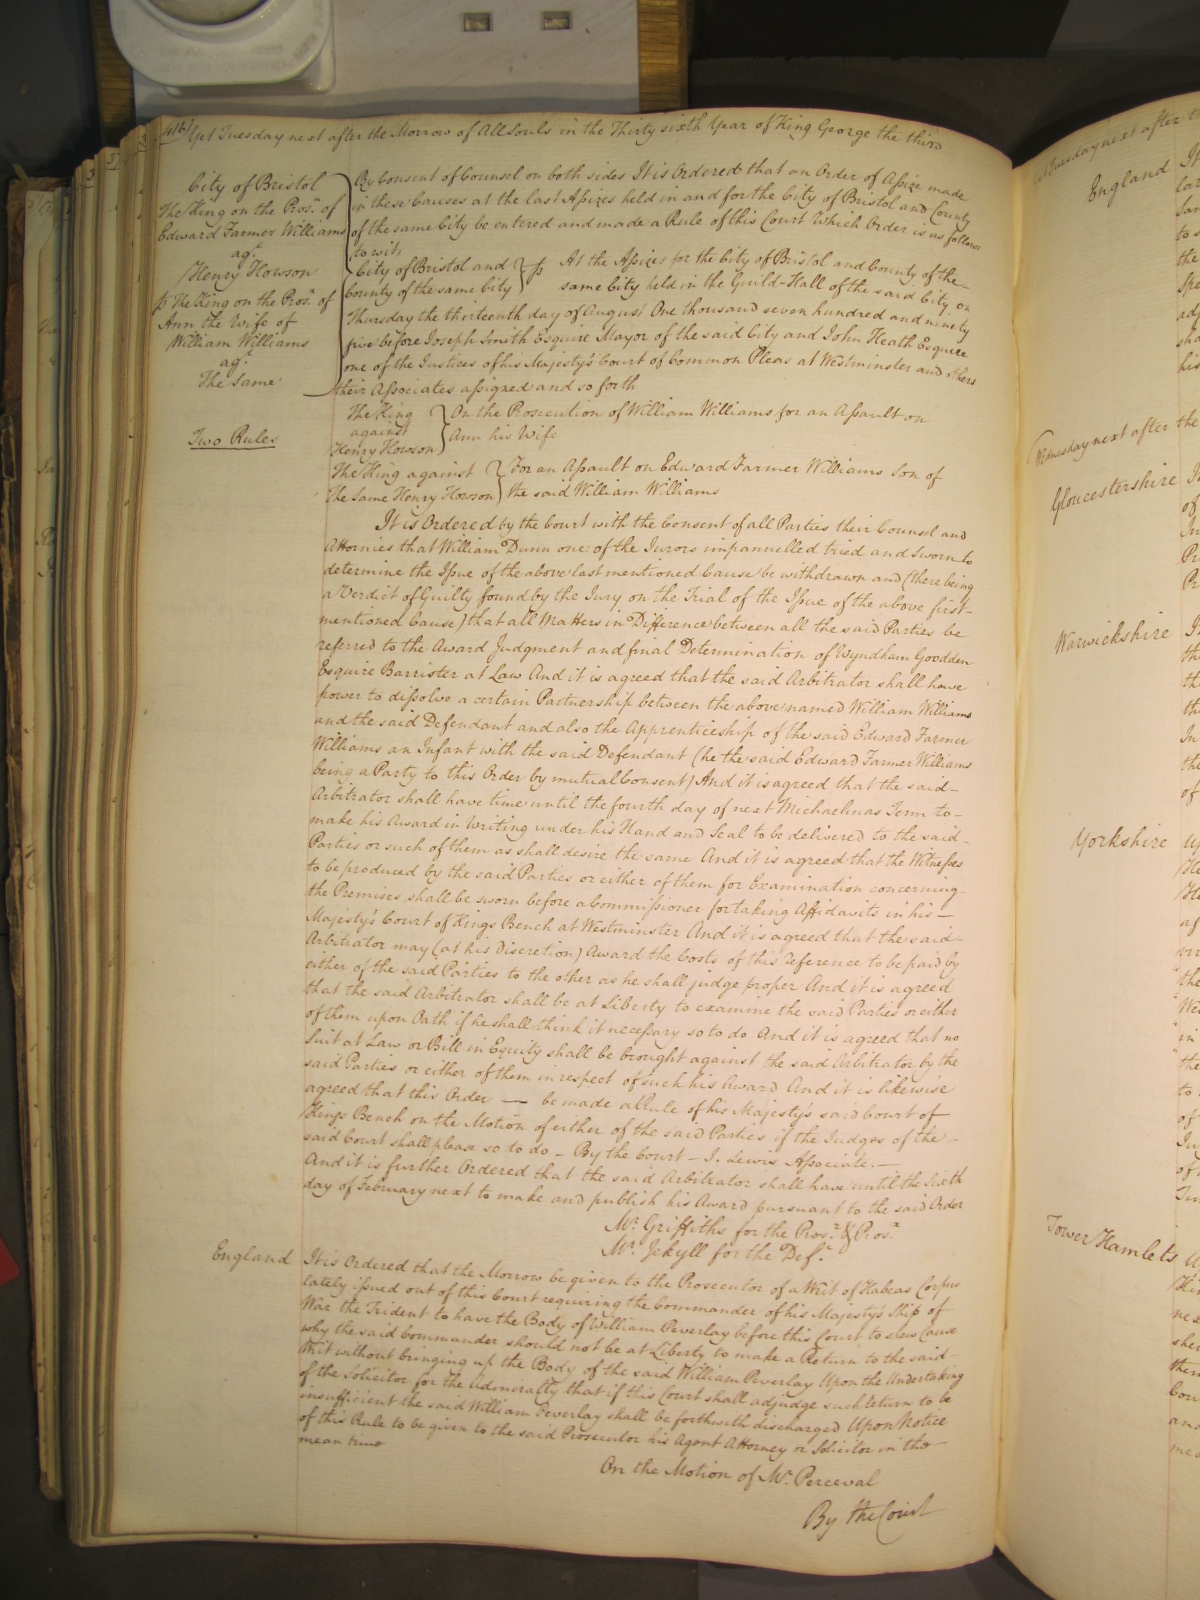 416) Yet Tuesday next after the Morrow of All Souls in the Thirty sixth Year of King George the third
City of Bristol
The King on the Pros.n of
Edward Farmer Williams
ag.t
Henry Howson
& The King on the Pros.n of
Ann the Wife of
William Williams
ag.t
The Same
Two Rules
By Consent of Counsel on both sides It is Ordered that an Order of Assize made
in these Causes at the last Assizes held in and for the City of Bristol and County
of the same City be entered and made a Rule of this Court Which Order is as follows
to wit,
City of Bristol and } ss At the Assizes for the City of Bristol and County of the
County of the same City } same City held in the Guild-Hall of the said City on
Thursday the thirteenth day of August One thousand seven hundred and ninety
five before Joseph Smith Esquire Mayor of the said City and John Heath Esquire
one of the Justices of his Majesty's Court of Common Pleas at Westminster and others
their Associates assigned and so forth
The King } On the Prosecution of William Williams for an Assault on
against } Ann his Wife
Henry Howson
The King against } For an Assault on Edward Farmer Williams Son of
The Same Henry Howson } the said William Williams
It is Ordered by the Court with the Consent of all Parties their Counsel and
Attornies that William Dunn one of the Jurors impannelled tried and Sworn to
determine the Issue of the above last mentioned Cause be withdrawn and (there being
a Verdict of Guilty found by the Jury on the Trial of the Issue of the above first-
mentioned Cause) that all Matters in Difference between all the said Parties be
referred to the Award Judgment and final Determination of Wyndham Goodden
Esquire Barrister at Law And it is agreed that the said Arbitrator shall have
power to dissolve a certain Partnership between the above named William Williams
and the said Defendant and also the Apprenticeship of the said Edward Farmer
Williams an Infant with the said Defendant (he the said Edward Farmer Williams
being a Party to this Order by mutual Consent) And it is agreed that the said -
Arbitrator shall have time until the fourth day of next Michaelmas Term to -
make his Award in Writing under his Hand and Seal to be delivered to the said -
Parties or such of them as shall desire the same And it is agreed that the Witnesses
to be produced by the said Parties or either of them for Examination concerning -
the Premises shall be sworn before a Commissioner for taking Affidavits in his -
Majesty's Court of Kings Bench at Westminster And it is agreed that the said -
Arbitrator may (at his Discretion) Award the Costs of this Reference to be paid by
either of the said Parties to the other as he shall judge proper And it is agreed
that the said Arbitrator shall be at Liberty to examine the said Parties or either
of them upon Oath if he shall think it necessary so to do And it is agreed that no
Suit at Law or Bill in Equity shall be brought against the said Arbitrator by the
said Parties or either of them in respect of such his Award And it is likewise
agreed that this Order — be made a Rule of his Majesty's said Court of
Kings Bench on the Motion of either of the said Parties if the Judges of the -
said Court shall please so to do - By the Court - J. Lewis Associate. -
And it is further Ordered that the said Arbitrator shall have until the Sixth
day of February next to make and publish his Award pursuant to the said Order
Mr. Griffiths for the Pros.r & Pros.x
Mr. Jekyll for the Def.t
England It is Ordered that the Morrow be given to the Prosecutor of a Writ of Habeas Corpus
lately issued out of this Court requiring the Commander of his Majesty's Ship of
War the Trident to have the Body of William Peverlay before this Court to shew Cause
why the said Commander should not be at Liberty to make a Return to the said -
Writ without bringing up the Body of the said William Peverlay Upon the Undertaking
of the Solicitor for the Admiralty that if this Court shall adjudge such Return to be
insufficient the said William Peverlay shall be forthwith discharged Upon Notice
of this Rule to be given to the said Prosecutor his Agent Attorney or Solicitor in the
mean time
On the Motion of Mr. Perceval
By the Court
Tuesday next after
England
Wednesday next after the
Gloucestershire
Warwickshire
Yorkshire
Tower Hamlets